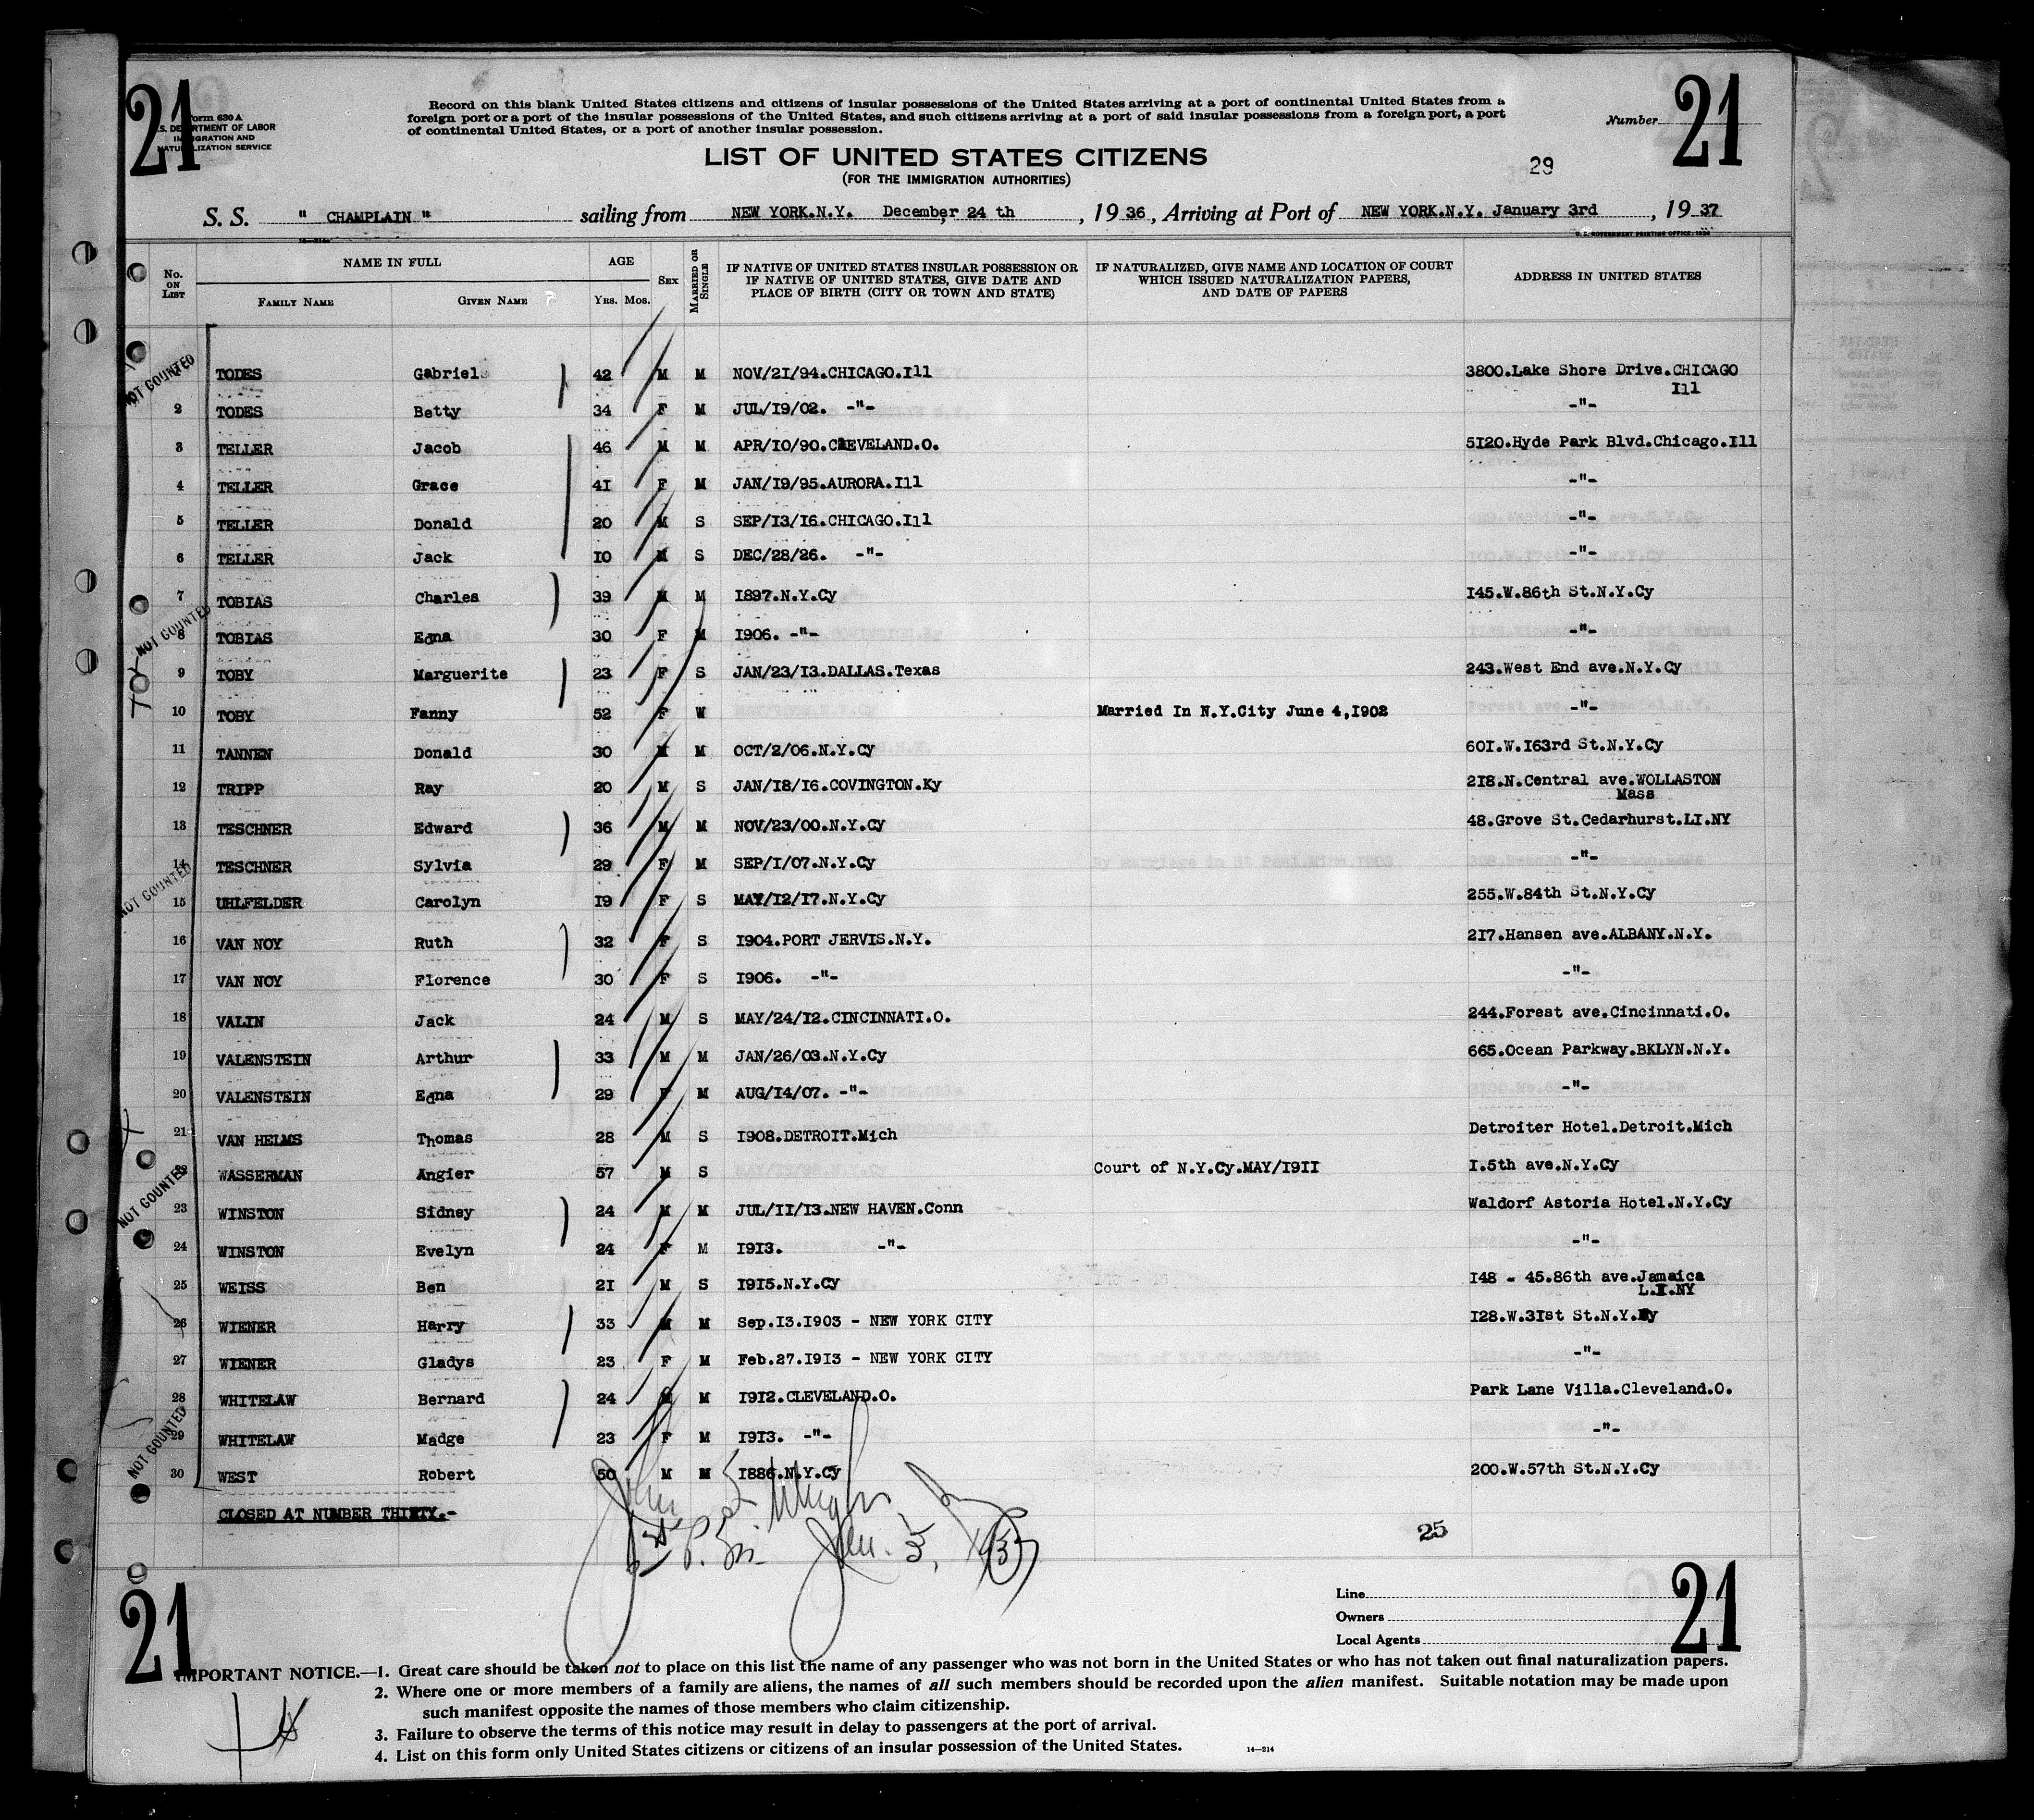 21
21
Form 630 A
U.S. DEPARTMENT OF LABOR
IMMIGRATION AND
NATURALIZATION SERVICE
Record on this blank United States citizens and citizens of insular possessions of the United States arriving at a port of continental United States from a
foreign port or a port of the insular possessions of the United States, and such citizens arriving at a port of said insular possessions from a foreign port, a port
of continental United States, or a port of another insular possession.
Number
LIST OF UNITED STATES CITIZENS
(FOR THE IMMIGRATION AUTHORITIES)
29
S. S. " CHAMPLAIN " sailing from NEW YORK.N.Y. December 24 th , 19 36 , Arriving at Port of NEW YORK.N.Y. January 3rd , 19 37
No. ON LIST NAME IN FULL FAMILY NAME GIVEN NAME AGE YRS. MOS. SEX MARRIED OR SINGLE IF NATIVE OF UNITED STATES INSULAR POSSESSION OR IF NATIVE OF UNITED STATES, GIVE DATE AND PLACE OF BIRTH (CITY OR TOWN AND STATE) IF NATURALIZED, GIVE NAME AND LOCATION OF COURT WHICH ISSUED NATURALIZATION PAPERS, AND DATE OF PAPERS ADDRESS IN UNITED STATES
NOT COUNTED
TODES Gabriel 42 M M NOV/21/94.CHICAGO.Ill 3800.Lake Shore Drive.CHICAGO
Ill
2 TODES Betty 34 F M JUL/19/02. -"- -"-
3 TELLER Jacob 46 M M APR/10/90.CLEVELAND.O. 5120.Hyde Park Blvd.Chicago.Ill
4 TELLER Grace 41 F M JAN/19/95.AURORA.Ill -"-
5 TELLER Donald 20 M S SEP/13/16.CHICAGO.Ill -"-
6 TELLER Jack 10 M S DEC/28/26. -"- -"-
7 TOBIAS Charles 39 M M 1897.N.Y.Cy 145.W.86th St.N.Y.Cy
NOT COUNTED
8 TOBIAS Edna 30 F M 1906. -"- -"-
9 TOBY Marguerite 23 F S JAN/23/13.DALLAS.Texas 243.West End ave.N.Y.Cy
10 TOBY Fanny 52 F W Married In N.Y.City June 4,1902 -"-
11 TANNEN Donald 30 M M OCT/2/06.N.Y.Cy 601.W.163rd St.N.Y.Cy
12 TRIPP Ray 20 M S JAN/18/16.COVINGTON.Ky 218.N.Central ave.WOLLASTON
Mass
13 TESCHNER Edward 36 M M NOV/23/00.N.Y.Cy 48.Grove St.Cedarhurst.LI.NY
14 TESCHNER Sylvia 29 F M SEP/1/07.N.Y.Cy -"-
NOT COUNTED
15 UHLFELDER Carolyn 19 F S MAY/12/17.N.Y.Cy 255.W.84th St.N.Y.Cy
16 VAN NOY Ruth 32 F S 1904.PORT JERVIS.N.Y. 217.Hansen ave.ALBANY.N.Y.
17 VAN NOY Florence 30 F S 1906. -"- -"-
18 VALIN Jack 24 M S MAY/24/12.CINCINNATI.O. 244.Forest ave.Cincinnati.O.
19 VALENSTEIN Arthur 33 M M JAN/26/03.N.Y.Cy 665.Ocean Parkway.BKLYN.N.Y.
20 VALENSTEIN Edna 29 F M AUG/14/07. -"- -"-
21 VAN HELMS Thomas 28 M S 1908.DETROIT.Mich Detroiter Hotel.Detroit.Mich
22 WASSERMAN Angier 57 M S Court of N.Y.Cy.MAY/1911 1.5th ave.N.Y.Cy
NOT COUNTED
23 WINSTON Sidney 24 M M JUL/11/13.NEW HAVEN.Conn Waldorf Astoria Hotel.N.Y.Cy
24 WINSTON Evelyn 24 F M 1913. -"- -"-
25 WEISS Ben 21 M S 1915.N.Y.Cy 148 - 45.86th ave.Jamaica
L.I.NY
26 WIENER Harry 33 M M Sep.13.1903 - NEW YORK CITY 128.W.31st St.N.Y.Cy
27 WIENER Gladys 23 F M Feb.27.1913 - NEW YORK CITY -"-
28 WHITELAW Bernard 24 M M 1912.CLEVELAND.O. Park Lane Villa.Cleveland.O.
NOT COUNTED
29 WHITELAW Madge 23 F M 1913. -"- -"-
30 WEST Robert 50 M M 1886.N.Y.Cy 200.W.57th St.N.Y.Cy
CLOSED AT NUMBER THIRTY.-
John
Jan. 3, 1937
25
21
21
Line
Owners
Local Agents
IMPORTANT NOTICE.—1. Great care should be taken not to place on this list the name of any passenger who was not born in the United States or who has not taken out final naturalization papers.
2. Where one or more members of a family are aliens, the names of all such members should be recorded upon the alien manifest. Suitable notation may be made upon
such manifest opposite the names of those members who claim citizenship.
3. Failure to observe the terms of this notice may result in delay to passengers at the port of arrival.
4. List on this form only United States citizens or citizens of an insular possession of the United States.
14—214